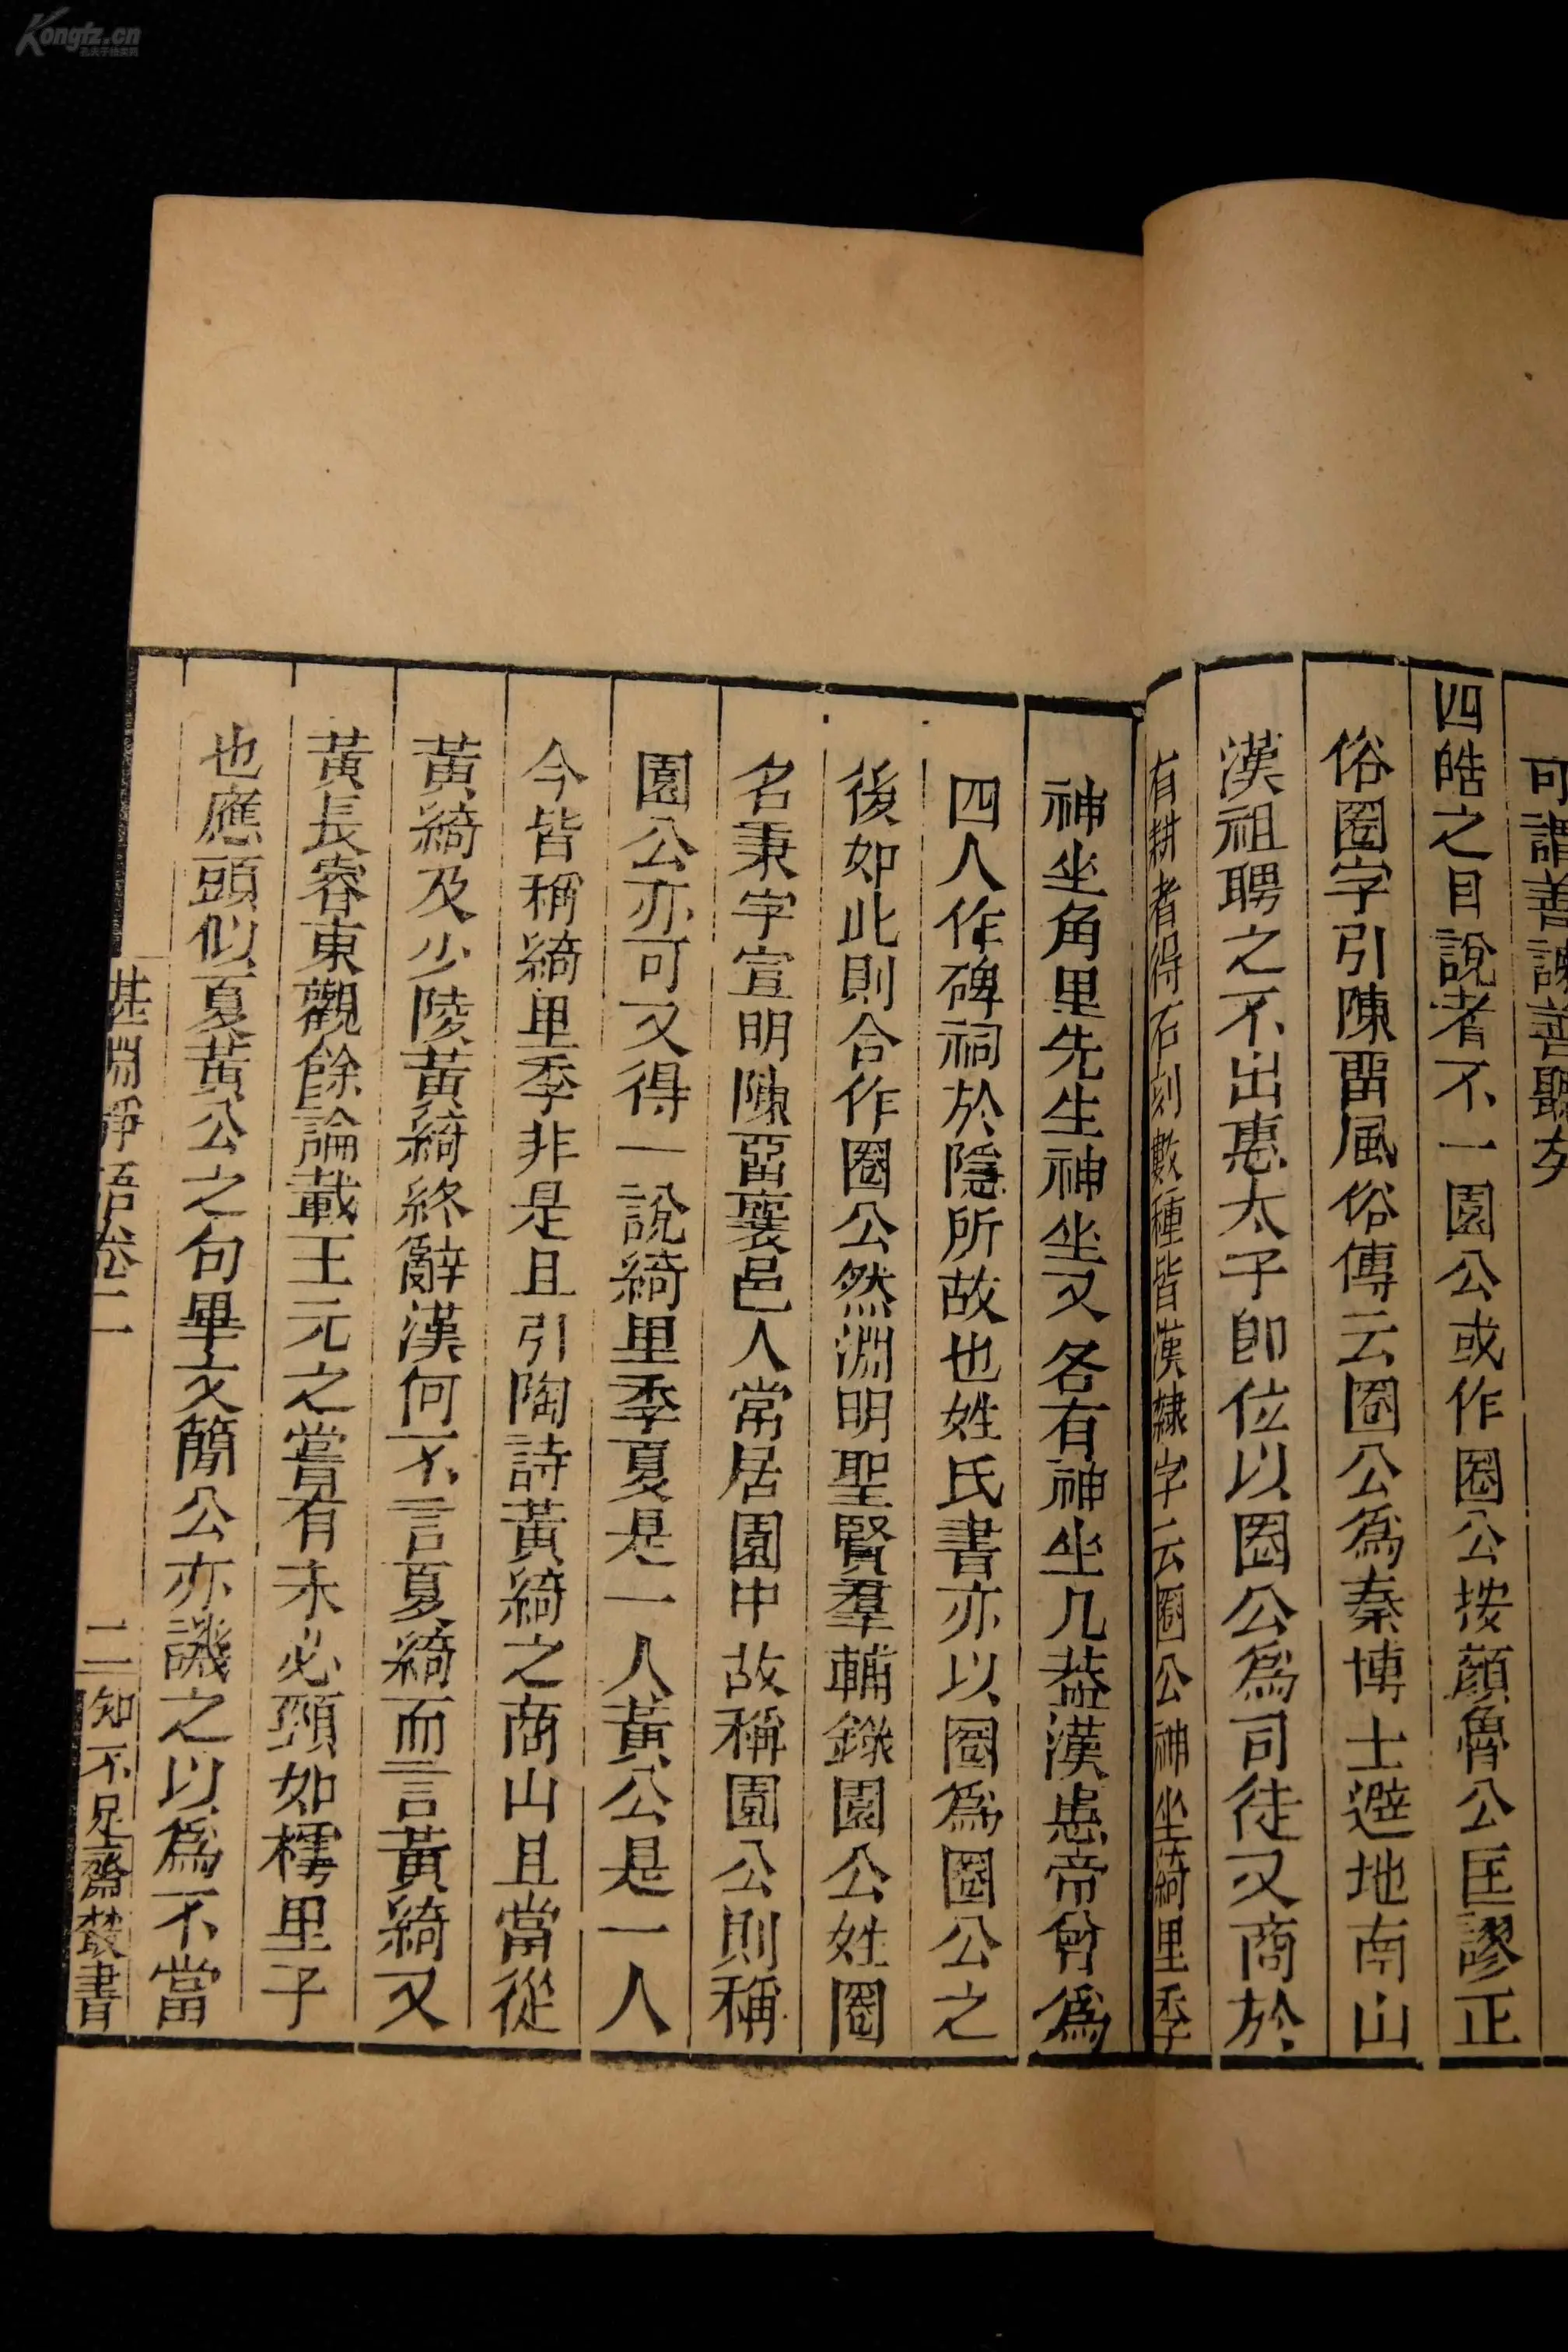 可謂善謔善聽矣
四皓之目說者不一園公或作圈公按顏魯公匡謬正
俗圈字引陳留風俗傳云圈公爲秦博士避地南山
漢祖聘之不出惠太子卽位以圈公爲司徒又商於
有耕者得石刻數種皆漢隸字云圈公神坐綺里季
神坐角里先生神坐又各有神坐几葢漢惠帝曾爲
四人作碑祠於隱所故也姓氏書亦以圈爲圈公之
後如此則合作圈公然淵明聖賢羣輔錄園公姓圈
名秉字宣明陳留襄邑人常居園中故稱園公則稱
園公亦可又得一說綺里季夏是一人黃公是一人
今皆稱綺里季非是且引陶詩黃綺之商山且當從
黃綺及少陵黃綺終辭漢何不言夏綺而言黃綺又
黃長睿東觀餘論載王元之嘗有未必頸如樗里子
也應頭似夏黃公之句畢文簡公亦譏之以爲不當
湛淵靜語卷二
二
知不足齋叢書
Kongfz.cn